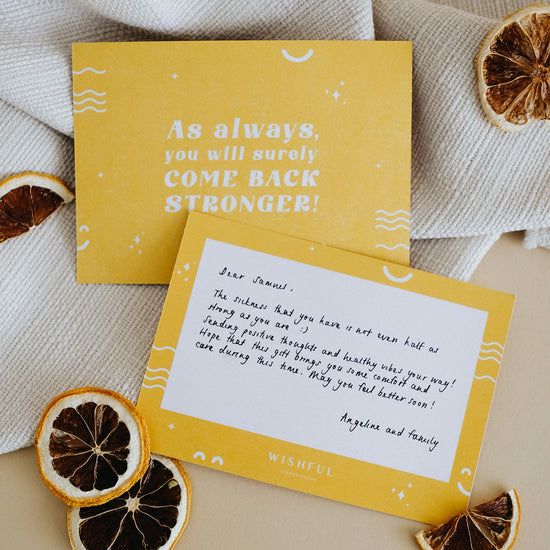 As always,
you will surely
COME BACK
STRONGER!
Dear Samuel,
The sickness that you have is not even half as
strong as you are :)
Sending positive thoughts and healthy vibes your way!
Hope that this gift brings you some comfort and
care during this time. May you feel better soon!
Angeline and family
WISHFUL